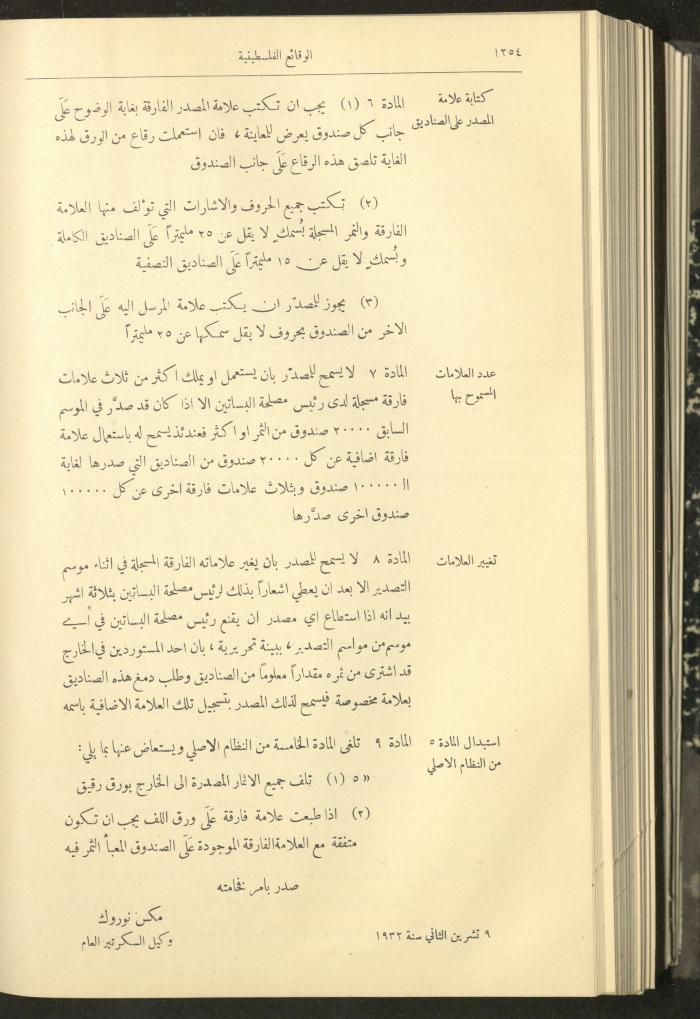 ١٢٥٤
الوقائع الفلسطينية
كتابة علامة
المصدر على الصناديق
المادة ٦ (١) يجب ان تكتب علامة المصدر الفارقة بغاية الوضوح عَلَى
جانب كل صندوق يعرض للمعاينة ، فان استعملت رقاع من الورق لهذه
الغاية تلصق هذه الرقاع عَلَى جانب الصندوق
(٢) تكتب جميع الحروف والاشارات التي توٴلف منها العلامة
الفارقة والنمر المسجلة بُسمك لا يقل عن ٢٥ مليمتراً عَلَى الصناديق الكاملة
وبُسمك لا يقل عن ١٥ مليمتراً عَلَى الصناديق النصفية
(٣) يجوز للمصدّر ان يكتب علامة المرسل اليه عَلَى الجانب
الاخر من الصندوق بحروف لا يقل سمكها عن ٢٥ مليمتراً
عدد العلامات
المسموح بها
المادة ٧ لا يسمح للمصدّر بان يستعمل او يملك اكثر من ثلاث علامات
فارقة مسجلة لدى رئيس مصلحة البساتين الا اذا كان قد صدَّر في الموسم
السابق ٢٠٠٠٠ صندوق من الثمر او اكثر فعندئذ يسمح له باستعمال علامة
فارقة اضافية عن كل ٢٠٠٠٠ صندوق من الصناديق التي صدرها لغاية
الـ ١٠٠٠٠٠ صندوق وبثلاث علامات فارقة اخرى عن كل ١٠٠٠٠٠
صندوق اخرى صدَّرها
تغيير العلامات
المادة ٨ لا يسمح للمصدر بان يغير علاماته الفارقة المسجلة في اثناء موسم
التصدير الا بعد ان يعطي اشعاراً بذلك لرئيس مصلحة البساتين بثلاثة اشهر
بيد انه اذا استطاع اي مصدر ان يقنع رئيس مصلحة البساتين في اي
موسم من مواسم التصدير ، ببينة تحريرية ، بان احد المستوردين في الخارج
قد اشترى من ثمره مقداراً معلوماً من الصناديق وطلب دمغ هذه الصناديق
بعلامة مخصوصة فيسمح لذلك المصدر بتسجيل تلك العلامة الاضافية باسمه
استبدال المادة ٥
من النظام الاصلي
المادة ٩ تلغى المادة الخامسة من النظام الاصلي ويستعاض عنها بما يلي :
« ٥ (١) تلف جميع الاثمار المصدرة الى الخارج بورق رقيق
(٢) اذا طبعت علامة فارقة عَلَى ورق اللف يجب ان تكون
متفقة مع العلامة الفارقة الموجودة عَلَى الصندوق المعبأ الثمر فيه
صدر بامر فخامته
مكس نوروك
وكيل السكرتير العام
٩ تشرين الثاني سنة ١٩٣٢